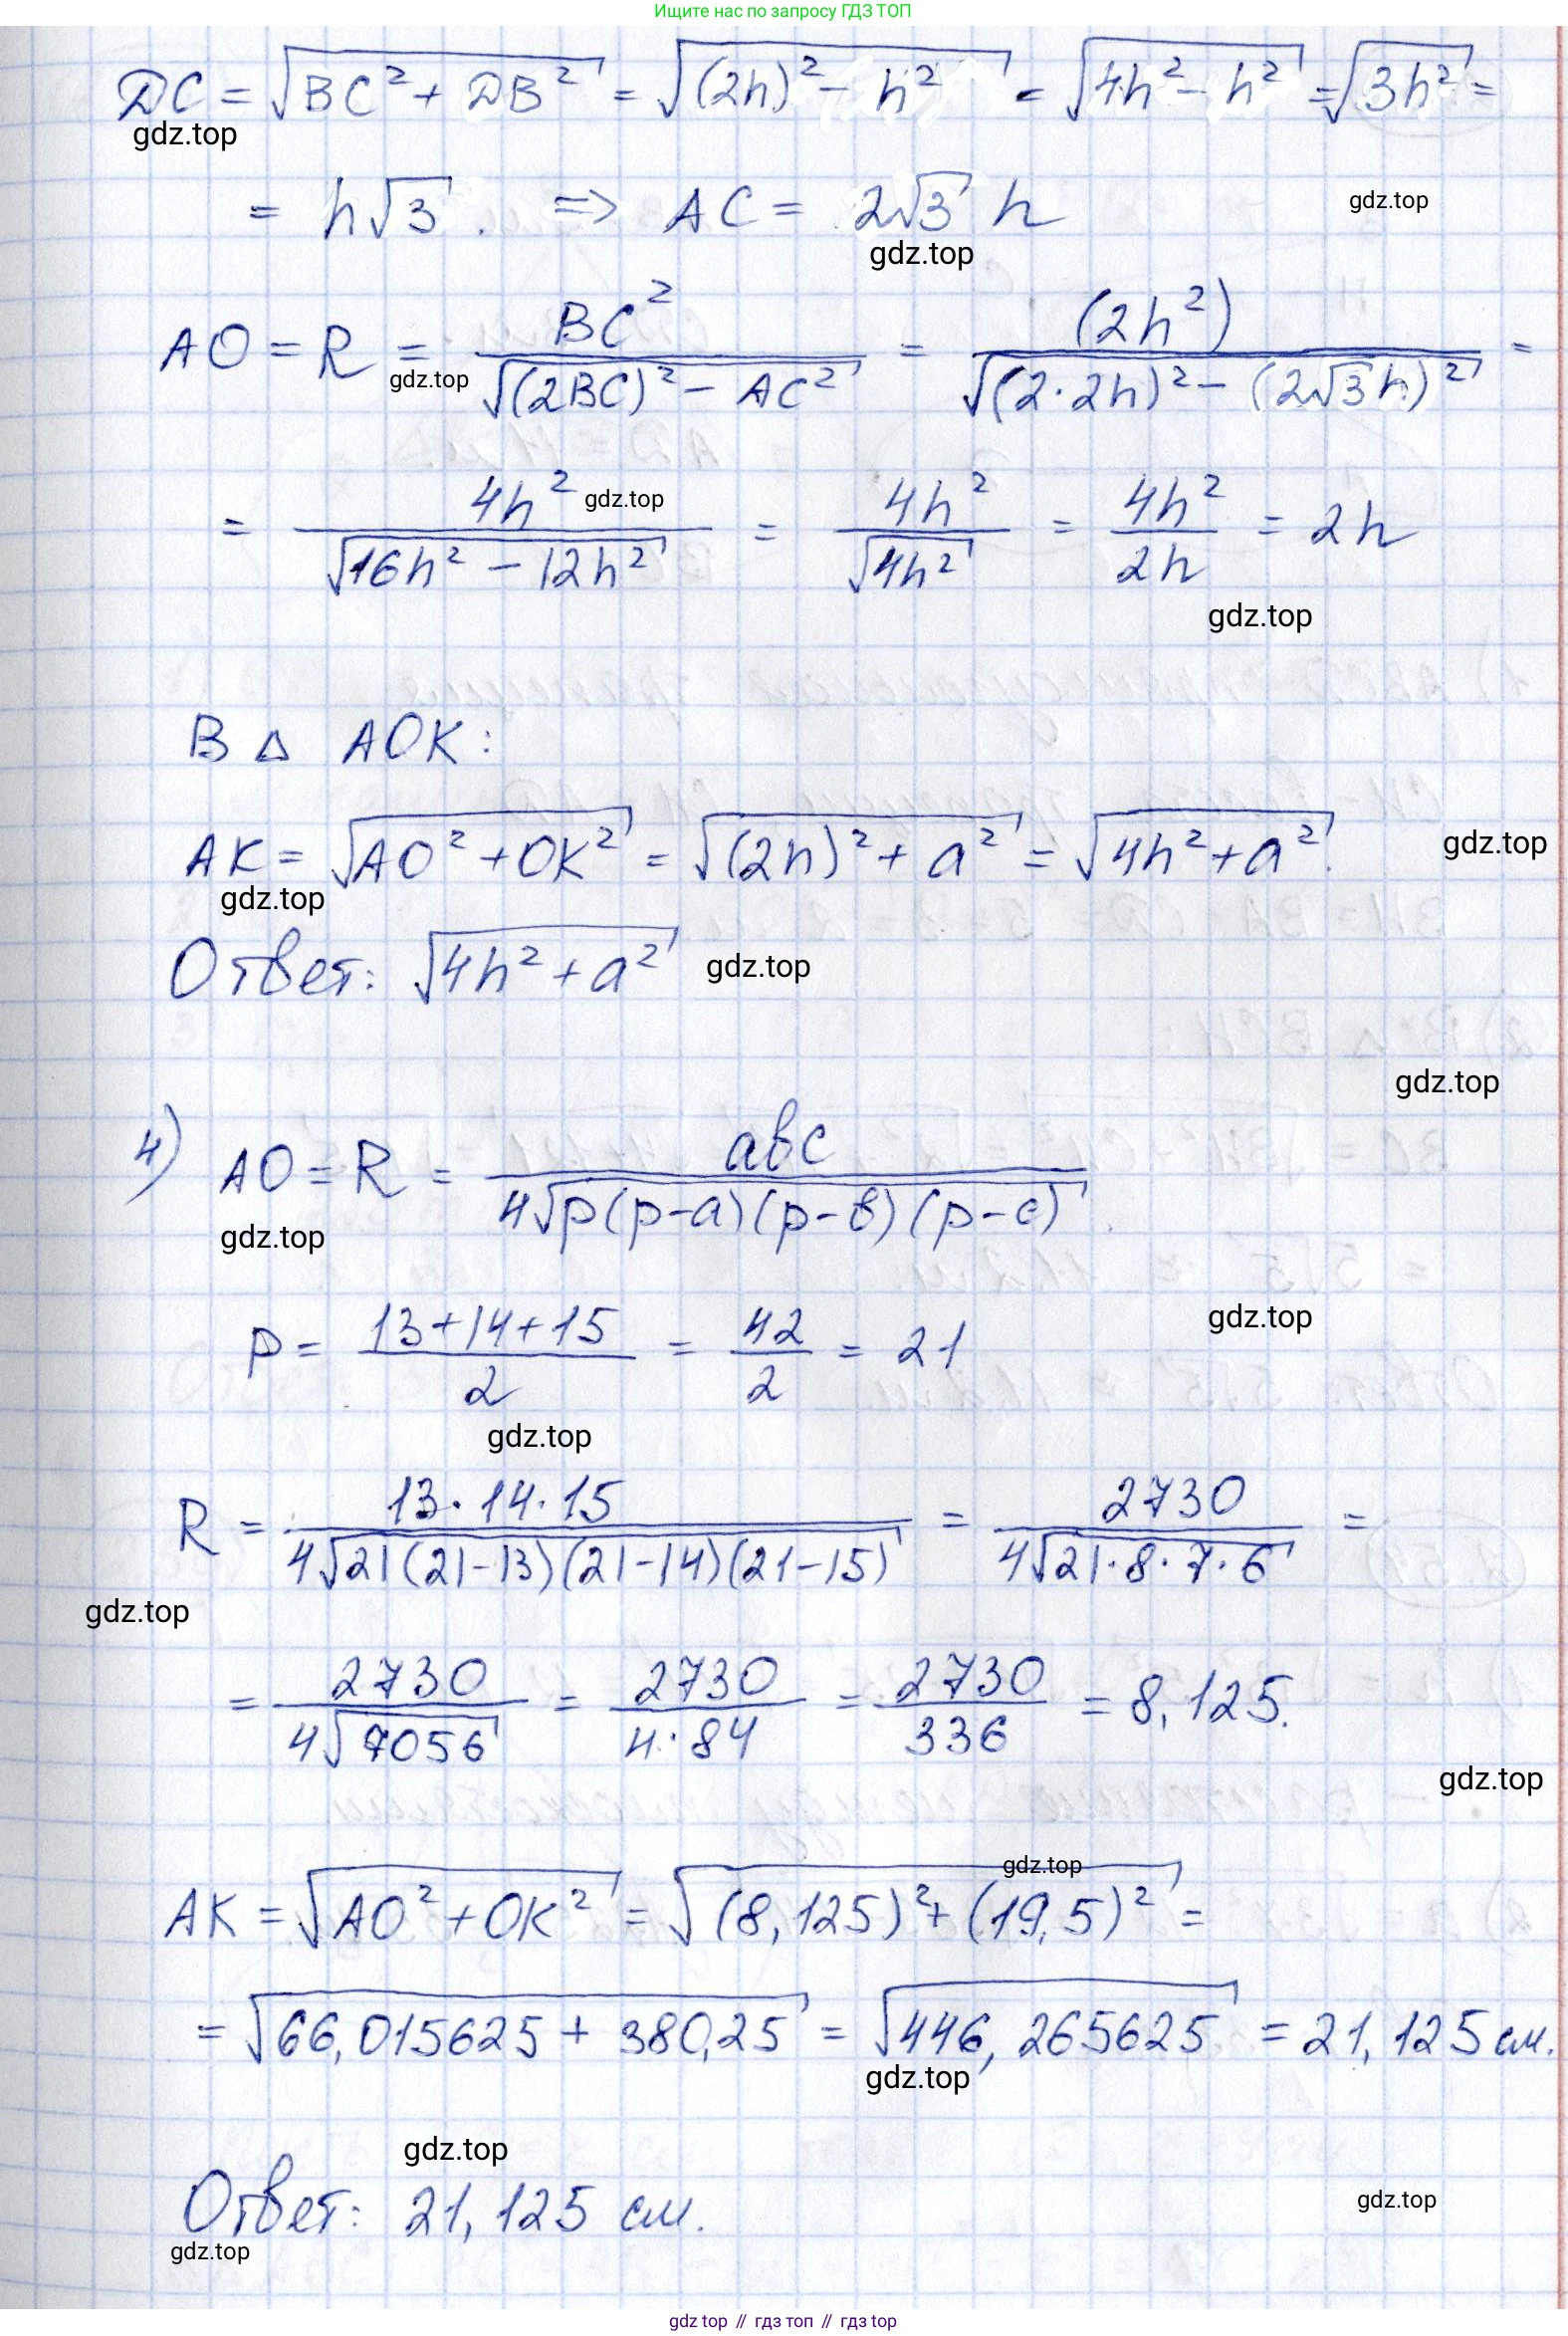 Ищите нас по запросу ГДЗ ТОП
DC = √(BC² + DB²) = √((2h)² − h²) = √(4h² − h²) = √(3h²) =
gdz.top
= h√3. => AC = 2√3 h
gdz.top
gdz.top
AO = R = BC² / √((2BC)² − AC²) = (2h²) / √((2·2h)² − (2√3h)²) =
gdz.top
= 4h² / √(16h² − 12h²) = 4h² / √(4h²) = 4h² / 2h = 2h
gdz.top
gdz.top
В △ AOK:
AK = √(AO² + OK²) = √((2h)² + a²) = √(4h² + a²).
gdz.top
gdz.top
Ответ: √(4h² + a²)
gdz.top
gdz.top
4) AO = R = abc / 4√(p(p−a)(p−b)(p−c))
gdz.top
gdz.top
P = (13+14+15) / 2 = 42 / 2 = 21
gdz.top
R = 13·14·15 / 4√(21(21−13)(21−14)(21−15)) = 2730 / 4√(21·8·7·6) =
gdz.top
= 2730 / 4√7056 = 2730 / 4·84 = 2730 / 336 = 8,125.
gdz.top
gdz.top
AK = √(AO² + OK²) = √((8,125)² + (19,5)²) =
= √(66,015625 + 380,25) = √(446,265625) = 21,125 см.
gdz.top
gdz.top
Ответ: 21,125 см.
gdz.top
gdz.top
gdz top // гдз топ // гдз top